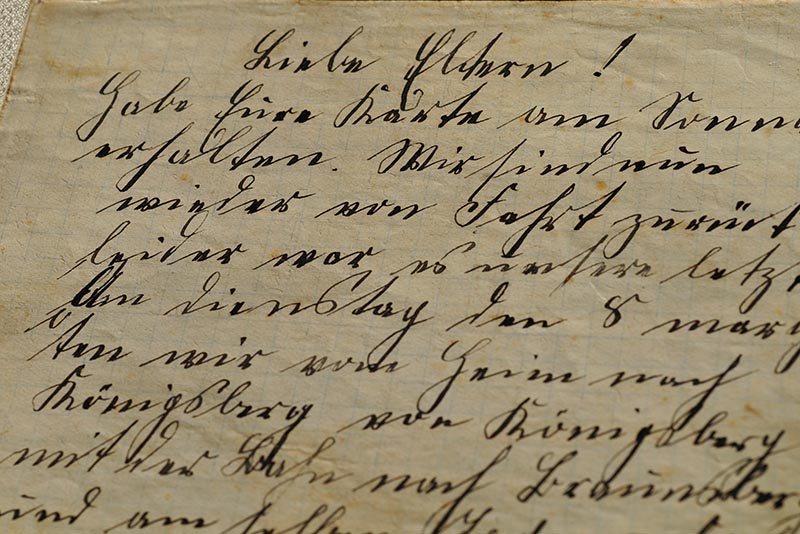 Liebe Eltern!
Habe Eure Karte am Sonn
erhalten. Wir sind nun
wieder von Fahrt zurück
leider war es unsere letzt
Am dienstag den 8 marsch
ten wir vom Heim nach
Königsberg von Königsberg
mit der Bahn nach Braunsber
und am selben